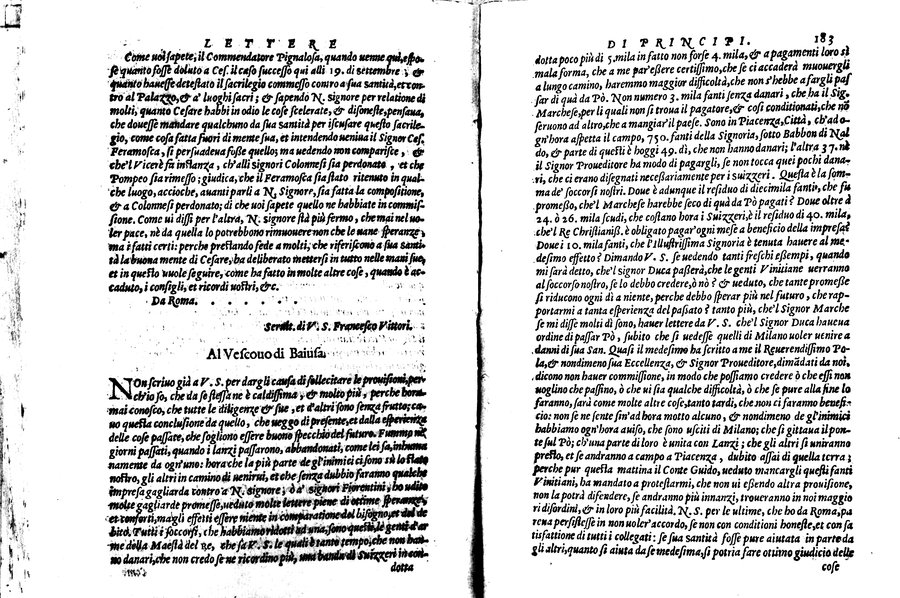 LETTERE
Come uoi sapete, il Commendatore Pignalosa, quando uenne quì, espo-
se quanto fosse doluto a Ces. il caso successo qui alli 19. di settembre; &
quanto hauesse detestato il sacrilegio commesso contro a sua santità, et con-
tro al Palazzo, & a' luoghi sacri; & sapendo N. signore per relatione di
molti, quanto Cesare habbi in odio le cose scelerate, & disoneste, pensaua,
che douesse mandare qualchuno da sua santità per iscusare questo sacrile-
gio, come cosa fatta fuori di mente sua, et intendendo ueniua il Signor Ces.
Feramosca, si persuadeua fosse quello; ma uedendo non comparisce, &
che'l Vicerè fa instanza, ch'alli signori Colonnesi sia perdonato, et che
Pompeo sia rimesso; giudica, che il Feramosca sia stato ritenuto in qual-
che luogo, accioche, auanti parli a N. Signore, sia fatta la compositione,
& a Colonnesi perdonato; di che uoi sapete quello ne habbiate in commis-
sione. Come ui dissi per l'altra, N. signore stà più fermo, che mai nel uo-
ler pace, nè da quella lo potrebbono rimuouere non che le uane speranze,
ma i fatti certi: perche prestando fede a molti, che riferiscono a sua santi-
tà la buona mente di Cesare, ha deliberato mettersi in tutto nelle mani sue,
et in questo uuole seguire, come ha fatto in molte altre cose, quando è ac-
caduto, i consigli, et ricordi uostri, &c.
Da Roma. . . . . . .
Seruit. di V. S. Francesco Vittori.
Al Vescouo di Baiusa.
NOn scriuo già a V. S. per dargli causa di sollecitare le prouisioni, per-
ch'io so, che da se stessa ne è caldissima, & molto più, perche hora-
mai conosco, che tutte le diligenze & sue, et d'altri sono senza frutto; ca-
uo questa conclusione da quello, che ueggo di presente, et dalla esperienza
delle cose passate, che sogliono essere buono specchio del futuro. Fummo ne'
giorni passati, quando i lanzi passarono, abbandonati, come lei sa, inhuma
namente da ogn'uno: hora che la più parte de gl'inimici ci sono sù lo stato
nostro, gli altri in camino di uenirui, et che senza dubbio faranno qualche
impresa gagliarda contro a N. signore; ò a' signori Fiorentini, ho udito
molte gagliarde promesse, ueduto molte lettere piene di ottime speranze,
et conforti, ma gli effetti essere niente in comparatione del bisogno, et del de
bito. Tutti i soccorsi, che habbiamo ridotti ad una, sono questi; le genti d'ar
me della Maestà del Re, che sa V. S. le quali è tanto tempo, che non han-
no danari, che non credo se ne ricordino più, una banda di Suizzeri in con-
dotta
DI PRINCIPI. 183
dotta poco più di 5. mila in fatto non forse 4. mila, & a pagamenti loro sì
mala forma, che a me par'essere certissimo, che se ci accaderà muouergli
a lungo camino, haremmo maggior difficoltà, che non s'hebbe a fargli pas
sar di quà da Pò. Non numero 3. mila fanti senza danari, che ha il Sig.
Marchese, per li quali non si troua il pagatore, & così conditionati, che nõ
seruono ad altro, che a mangiar'il paese. Sono in Piacenza, Città, ch'ad o-
gn'hora aspetta il campo, 750. fanti della Signoria, sotto Babbon di Nal
do, & parte di questi è hoggi 49. dì, che non hanno danari; l'altra 37. nè
il Signor Proueditore ha modo di pagargli, se non tocca quei pochi dana-
ri, che ci erano disegnati necessariamente per i suizzeri. Questa è la som-
ma de' soccorsi nostri. Doue è adunque il residuo di diecimila fanti, che fu
promesso, che'l Marchese harebbe seco di quà da Pò pagati? Doue oltre à
24. ò 26. mila scudi, che costano hora i Suizzeri, è il residuo di 40. mila,
che'l Re Christianiss. è obligato pagar'ogni mese a beneficio della impresa?
Doue i 10. mila fanti, che l'Illustrissima Signoria è tenuta hauere al me-
desimo effetto? Dimando V. S. se uedendo tanti freschi essempi, quando
mi sarà detto, che'l signor Duca passerà, che le genti Vinitiane uerranno
al soccorso nostro, se lo debbo credere, ò nò? & ueduto, che tante promesse
si riducono ogni dì a niente, perche debbo sperar più nel futuro, che rap-
portarmi a tanta esperienza del passato? tanto più, che'l Signor Marche
se mi disse molti dì sono, hauer lettere da V. S. che'l Signor Duca haueua
ordine di passar Pò, subito che si uedesse quelli di Milano uoler uenire a
danni di sua San. Quasi il medesimo ha scritto a me il Reuerendissimo Po-
la, & nondimeno sua Eccellenza, & Signor Proueditore, dimãdati da noi,
dicono non hauer commissione, in modo che possiamo credere ò che essi non
uoglino che passino, ò che ui sia qualche difficoltà, ò che se pure alla fine lo
faranno, sarà come molte altre cose, tanto tardi, che non ci faranno benefi-
cio: non se ne sente sin'ad hora motto alcuno, & nondimeno de gl'inimici
habbiamo ogn'hora auiso, che sono usciti di Milano; che si gittaua il pon-
te sul Pò; ch'una parte di loro è unita con Lanzi; che gli altri si uniranno
presto, et se andranno a campo a Piacenza, dubito assai di quella terra;
perche pur questa mattina il Conte Guido, ueduto mancargli questi fanti
Vinitiani, ha mandato a protestarmi, che non ui essendo altra prouisione,
non la potrà difendere, se andranno più innanzi, troueranno in noi maggio
ri disordini, & in loro più facilità. N. S. per le ultime, che ho da Roma, pa
reua persistesse in non uoler'accordo, se non con conditioni honeste, et con sa
tisfattione di tutti i collegati: se sua santità fosse pure aiutata in parte da
gli altri, quanto si aiuta da se medesima, si potria fare ottimo giudicio delle
cose